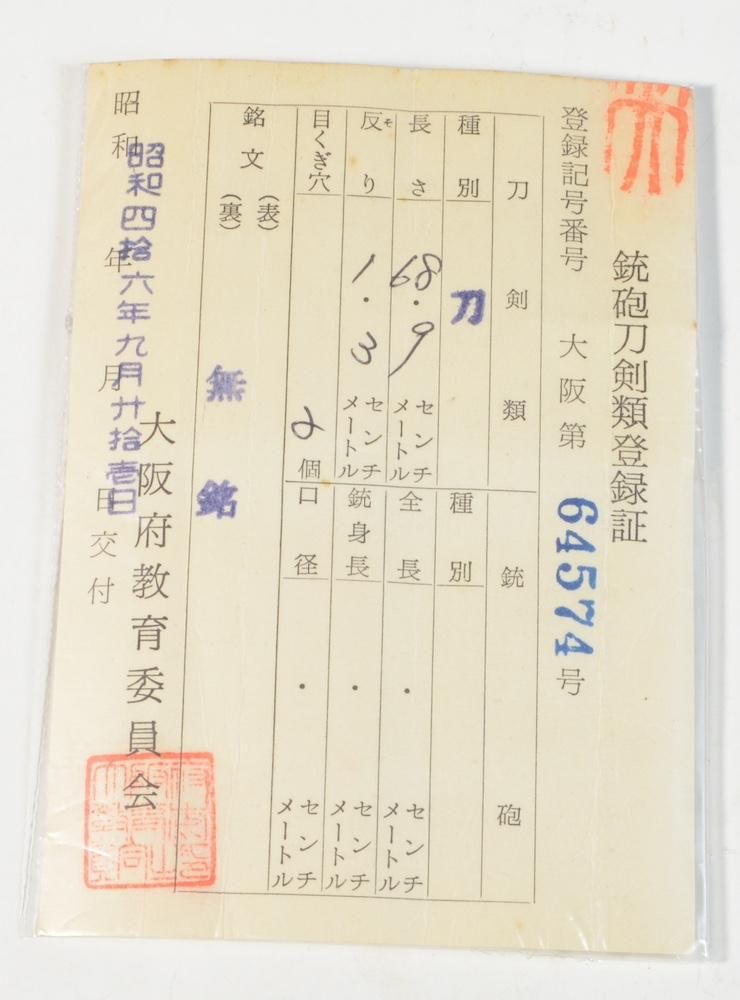 銃砲刀剣類登録証
登録記号番号 大阪第 64574号
刀剣類
種別 刀
長さ 68.9 センチメートル
反り 1.3 センチメートル
ソ
目くぎ穴 2個
銃砲
種別
全長 . センチメートル
銃身長 . センチメートル
口径 . センチメートル
銘文 (表) 無銘
(裏)
大阪府教育委員会
昭和 年 月 日交付
昭和四拾六年九月廿拾壱日